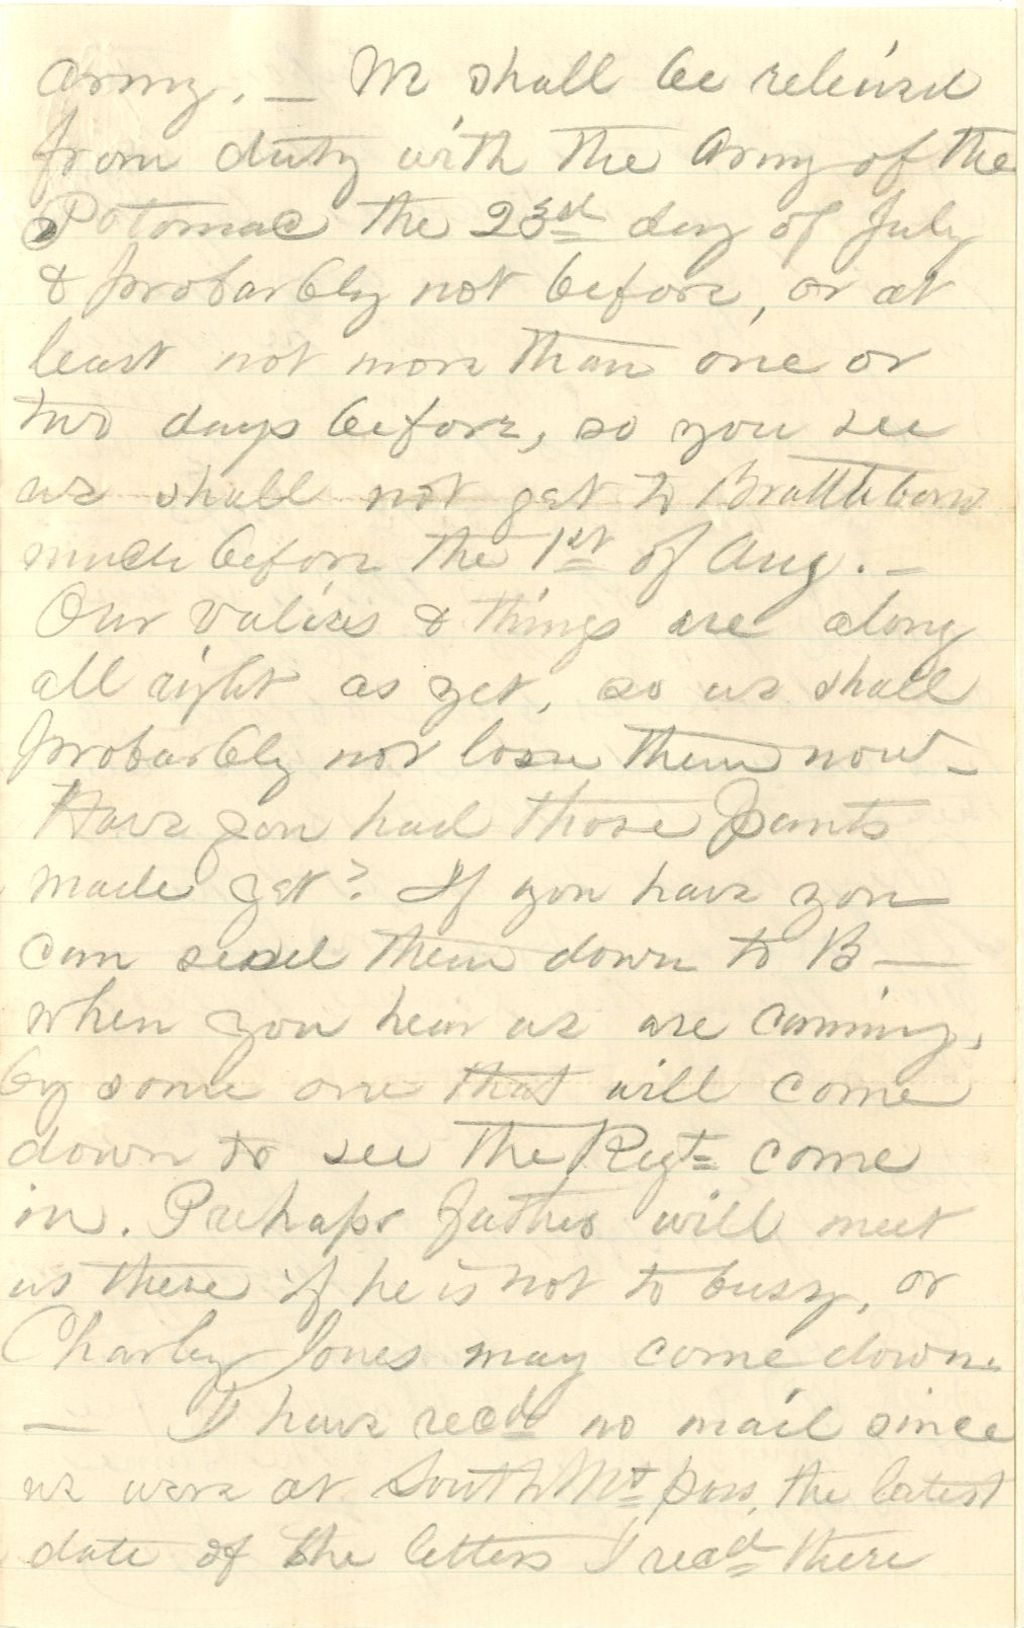 Army. — We shall be relieved
from duty with the Army of the
Potomac the 23rd day of July
& probarbly not before, or at
least not more than one or
two days before, so you see
we shall not get to Brattleboro
much before the 1st of Aug. —
Our valises & things are along
all right as yet, so we shall
probarbly not loose them now —
Have you had those pants
made yet? If you have you
can send them down to B —
when you hear we are comming,
by some one that will come
down to see the Regt come
in. Perhaps father will meet
us there if he is not to busy, or
Charley Jones may come down.
— I have recd no mail since
we were at South Mt pass, the latest
date of the letters I recd there